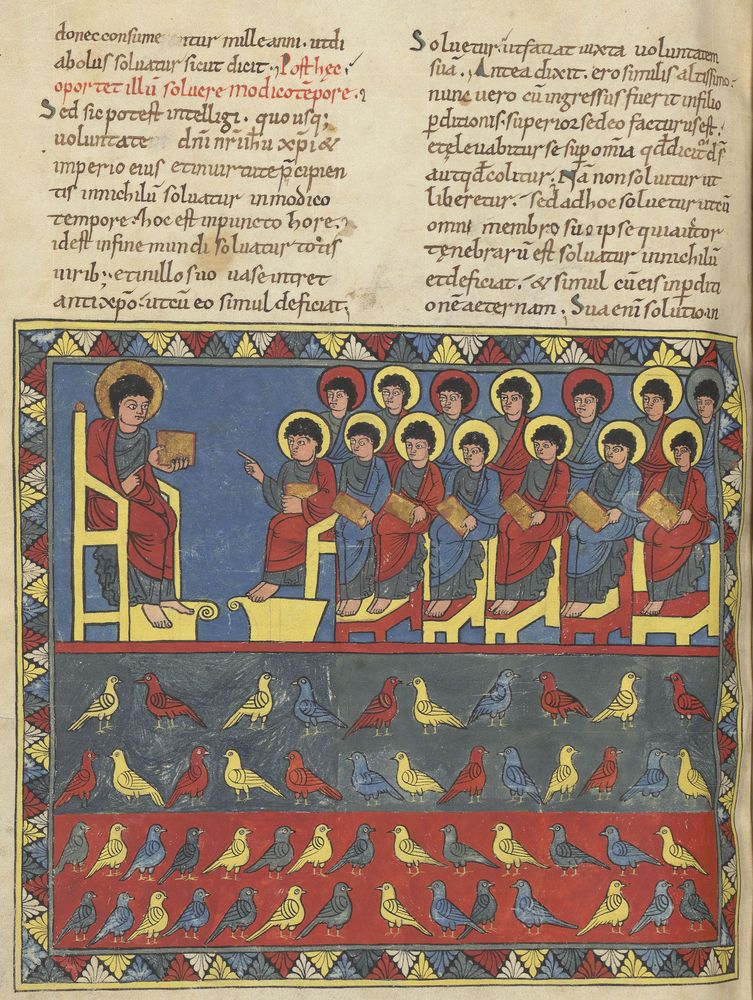 donec consume ntur mille anni. ut di
abolus soluatur sicut dicit. Post hęc
oportet illū soluere modico tēpore.
Sed sic potest intelligi. quo usq;
voluntate dn̄i nr̄i ihu xp̄i &
imperio eius et in uirtute p̄cipien
tis in nichilū soluatur in modico
tempore. hoc est in puncto hore.
id est in fine mundi soluatur totis
uirib; et in illo suo uase intret
antixp̄o. ut cū eo simul deficiat.
Soluetur. ut faciat iuxta uoluntatem
suā. Antea dixit. ero similis altissimo.
nunc uero cū ingressus fuerit in filio
p̄ditionis. superior se deo facturus est.
et eleuabitur se sup om̄ia qd̄ dicit d̄s
aut qd̄ colitur. Nā non soluitur ut
liberetur. sed ad hoc soluetur ut cū
omni membro suo ipse qui auctor
tenebrarū est soluatur in nichilū
et deficiat. & simul cū eis in p̄diti
onē aeternam. Sua enī solutio in